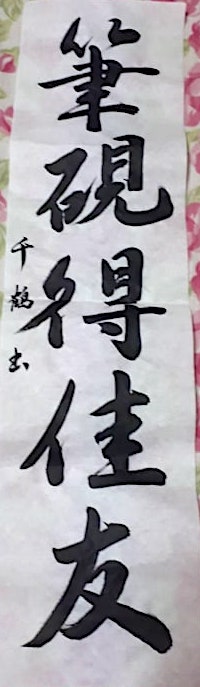 筆硯得佳友
千鶴書